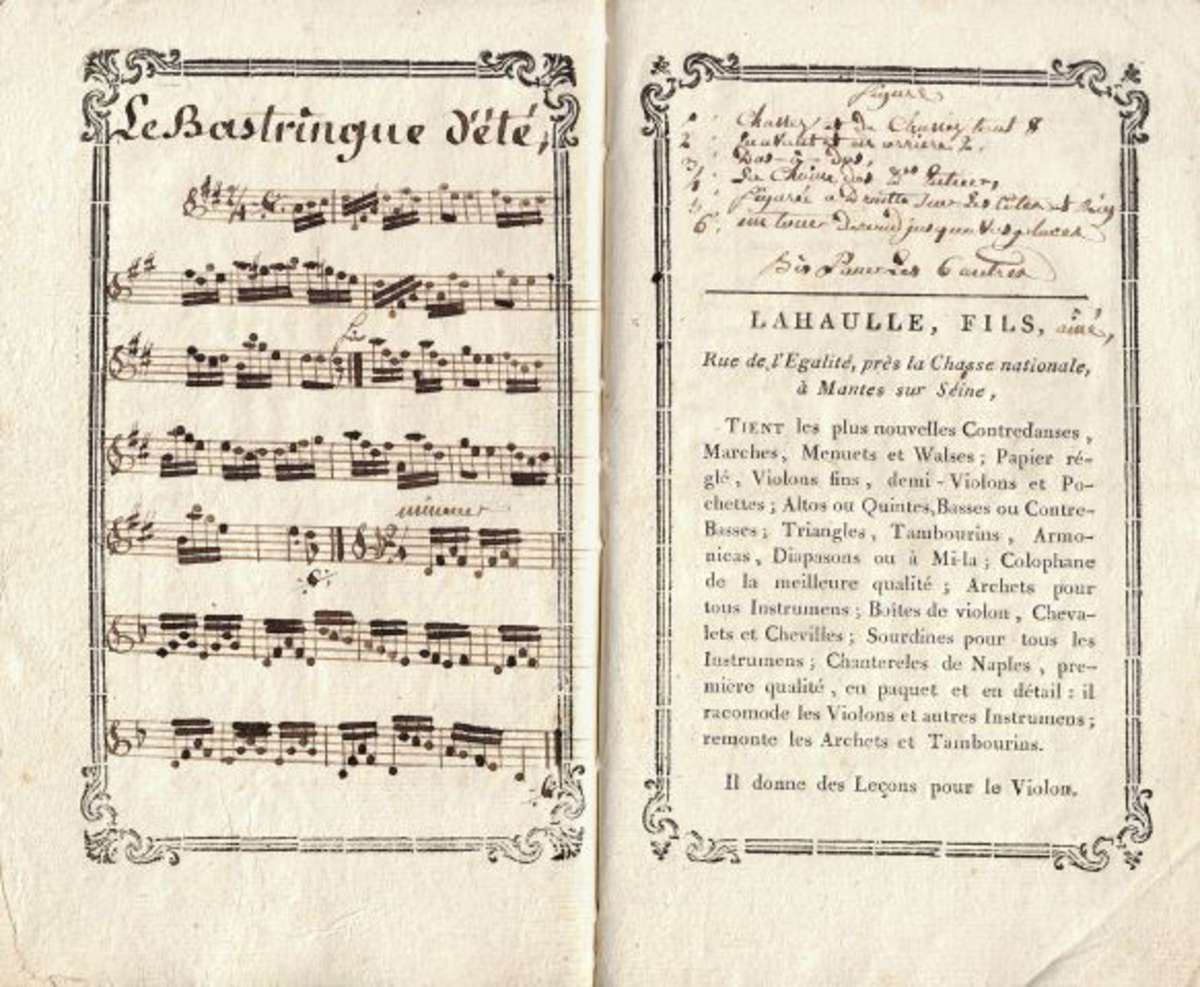 Le Bastringue d'été,
mineur
figure
1. Chassez et de Chassez tout 8
2. En avant et en arriere 2.
3. Dos-à-dos,
4. La Chaine des Des
5. a Droitte Sur les Cotés et
6. un tour
les 6 autres
LAHAULLE, FILS, ainé,
Rue de l'Egalité, près la Chasse nationale,
à Mantes sur Séine,
TIENT les plus nouvelles Contredanses,
Marches, Menuets et Walses; Papier ré-
glé, Violons fins, demi-Violons et Po-
chettes; Altos ou Quintes, Basses ou Contre-
Basses; Triangles, Tambourins, Armo-
nicas, Diapasons ou à Mi-la; Colophane
de la meilleure qualité; Archets pour
tous Instrumens; Boîtes de violon, Cheva-
lets et Chevilles; Sourdines pour tous les
Instrumens; Chantereles de Naples, pre-
mière qualité, en paquet et en détail: il
racomode les Violons et autres Instrumens;
remonte les Archets et Tambourins.
Il donne des Leçons pour le Violon.